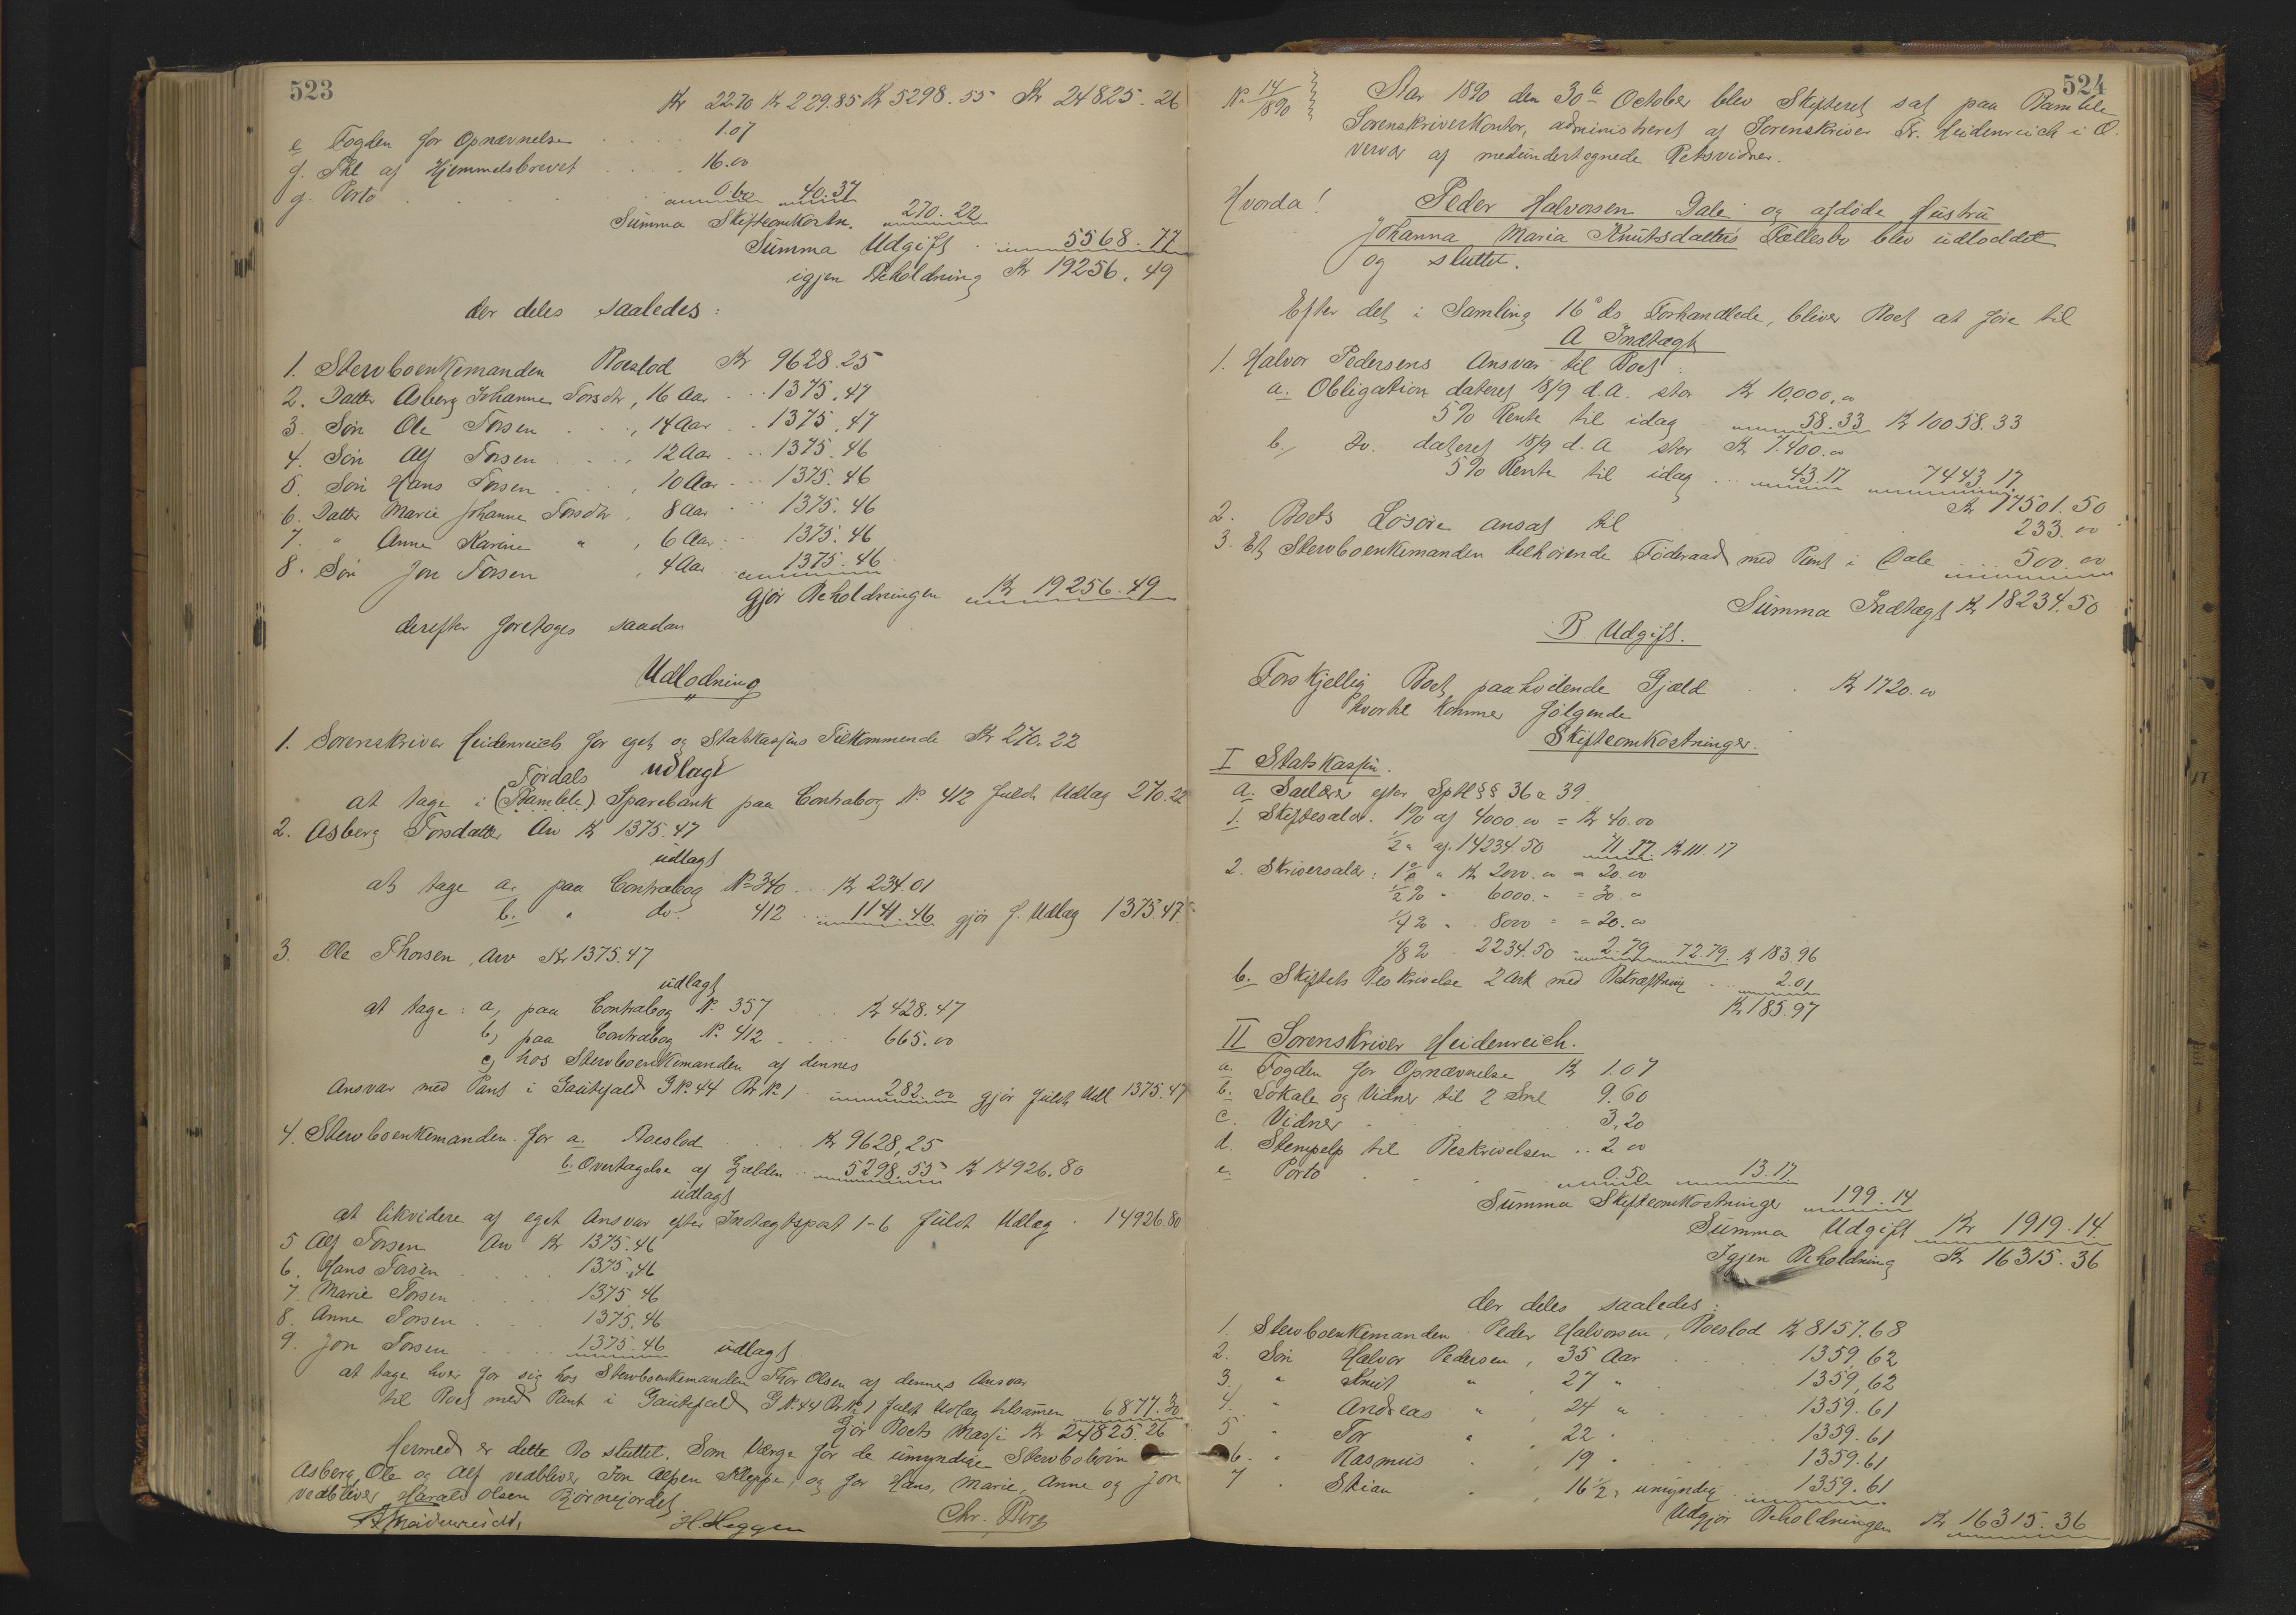 523
Kr 22.70 Kr 229.85 Kr 5298.55 Kr 24825.26
e Fogden for Opnævnelse 1.07
f. Skl af Hjemmelsbrevet 16.00
g. Porto 0.60 40.37
Summa Skifteomkostn. 270.22
Summa Udgift 5568.77
igjen Beholdning Kr 19256.49
der deles saaledes:
1. Stervboenkemanden Boeslod Kr 9628.25
2. Datter Asberg Johanne Torsdtr, 16 Aar 1375.47
3. Søn Ole Torsen, 14 Aar 1375.47
4. Søn Alf Torsen, 12 Aar 1375.46
5. Søn Hans Torsen, 10 Aar 1375.46
6. Datter Marie Johanne Torsdtr, 8 Aar 1375.46
7. " Anne Karine ", 6 Aar 1375.46
8. Søn Jon Torsen, 4 Aar 1375.46
gjør Beholdningen Kr 19256.49
derefter foretoges saadan
Udlodning
1. Sorenskriver Heidenreich for eget og Statskassens Tilkommende Kr 270.22
udlagt
Tørdals
at tage i (Bamble) Sparebank paa Contrabog No 412 fuldt Udlæg 270.22
2. Asberg Torsdatter Arv Kr 1375.47
udlagt
at tage a. paa Contrabog No 340 Kr 234.01
b. " do. 412 1141.46 gjør f. Udlæg 1375.47
3. Ole Thorsen, Arv Kr 1375.47
udlagt
at tage: a, paa Contrabog No 357 Kr 428.47
b, paa Contrabog No 412 665.00
c, hos Stervboenkemanden af dennes
Ansvar med Pant i Gautefald G No 44 Br No 1 282.00 gjør fuldt Udl 1375.47
4. Stervboenkemanden for a. Boeslod Kr 9628,25
b. Overtagelse af Gjælden 5298.55 Kr 14926.80
udlagt
at likvidere af eget Ansvar efter Indtægtspost 1-6 fuldt Udlæg 14926.80
5 Alf Torsen Arv Kr 1375.46
6. Hans Torsen 1375.46
7. Marie Torsen 1375.46
8. Anne Torsen 1375.46
9. Jon Torsen 1375.46 udlagt
at tage hver for sig hos Stervboenkemanden Thor Olsen af dennes Ansvar
til Boet med Pant i Gautefald G No 44 Br No 1 fuldt Udlæg tilsammen 6877.30
Gjør Boets Masse Kr 24825.26
Hermed er dette Bo sluttet. Som Værge for de umyndige Stervbobørn
Asberg, Ole og Alf vedbliver Jon Alfsen Kleppe, og for Hans, Marie, Anne og Jon
vedbliver Harald Olsen Bjørnejordet.
Heidenreich, H. Heggen Chr. Berg
524
No 14/1890
Aar 1890 den 30te October blev Skifteret sat paa Bamble
Sorenskriverkontor, administreret af Sorenskriver Fr. Heidenreich i O.
vervær af medundertegnede Retsvidner.
Hvorda!
Peder Halvorsen Dale og afdøde Hustru
Johanna Maria Knutsdatters Fællesbo blev udloddet
og sluttet.
Efter det i Samling 16 ds Forhandlede, bliver Boet at føre til
A Indtægt
1. Halvor Pedersens Ansvar til Boet:
a. Obligation dateret 18/9 d.A. stor Kr 10,000,00
5% Rente til idag 58.33 Kr 10058.33
b. Do. dateret 18/9 d.A stor Kr 7.400.00
5% Rente til idag 43.17 7443.17
Kr 17501.50
2. Boets Løsøre ansat til 233.00
3. Et Stervboenkemanden tilhørende Føderaad med Pant i Dale 500.00
Summa Indtægt Kr 18234.50
B. Udgift.
Forskjellig Boet paahvilende Gjæld Kr 1720.00
hvortil kommer følgende
Skifteomkostninger.
I Statskassen.
a. Salær efter Sptl §§ 36 a 39
1. Skiftesalær. 1% af 4000.00 = Kr 40.00
1/2 " af. 14234.50 71.17 Kr 111.17
2. Skriversalær: 1% " Kr 2000.00 = 20.00
1/2% " 6000. " = 30.00
1/4% " 8000 " = 20.00
1/8% " 2234.50 " 2.79 72.79 Kr 183.96
b. Skiftets Beskrivelse 2 Ark med Bekræftning 2.01
Kr 185.97
II Sorenskriver Heidenreich.
a. Fogden for Opnævnelse Kr 1.07
b. Lokale og Vidner til 2 Saml 9.60
c. Vidner 3,20
d. Stempelp til Beskrivelsen 2.00
e. Porto 0.50 13.17
Summa Skifteomkostninger 199.14
Summa Udgift Kr 1919.14
Igjen Beholdning Kr 16315.36
der deles saaledes:
1. Stervboenkemanden Peder Halvorsen, Boeslod Kr 8157.68
2. Søn Halvor Pedersen, 35 Aar 1359,62
3. " Knut ", 27 " 1359,62
4. " Andreas ", 24 " 1359.61
5 " Tor ", 22 " 1359.61
6. " Rasmus ", 19 " 1359.61
7 " Stian ", 16 1/2, umyndig 1359.61
Udgjør Beholdningen Kr 16315.36